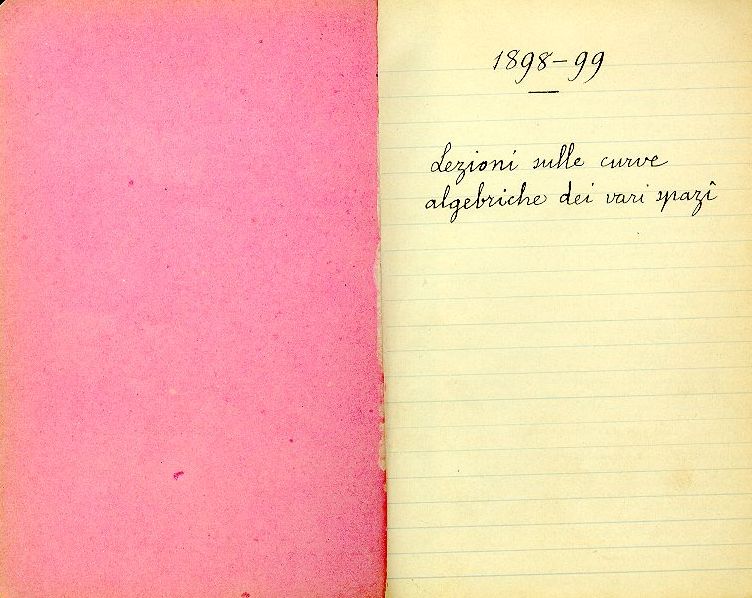 1898-99
Lezioni sulle curve
algebriche dei vari spazî